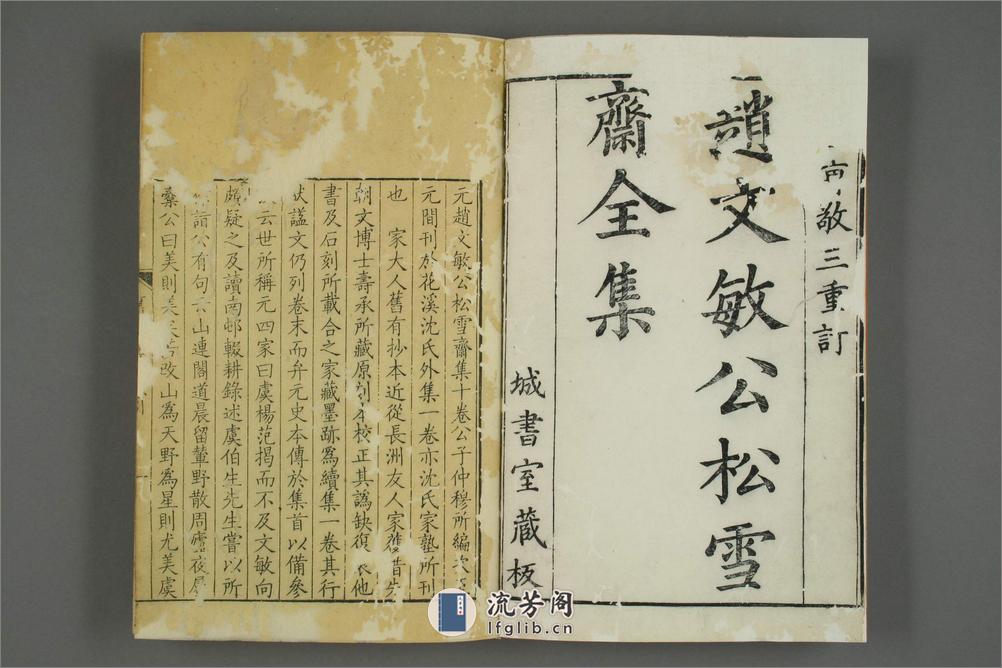 敬三重訂
趙文敏公松雪
齋全集
城書室藏板
元趙文敏公松雪齋集十卷公子仲穆所編次至
元間刊於花溪沈氏外集一卷亦沈氏家塾所刊
也 家大人舊有抄本近從長洲友人家獲昔先
朝文博士壽承所藏原刻本校正其譌缺復 他
書及石刻所載合之家藏墨跡爲續集一卷其行
狀謚文仍列卷末而弁元史本傳於集首以備參
云世所稱元四家曰虞楊范揭而不及文敏向
頗疑之及讀南邨輟耕錄述虞伯生先生嘗以所
詣公有句云山連閣道晨留輦野散周廬夜屬
櫜公曰美則美矣若改山爲天野爲星則尤美虞
流芳阁
lfglib.cn